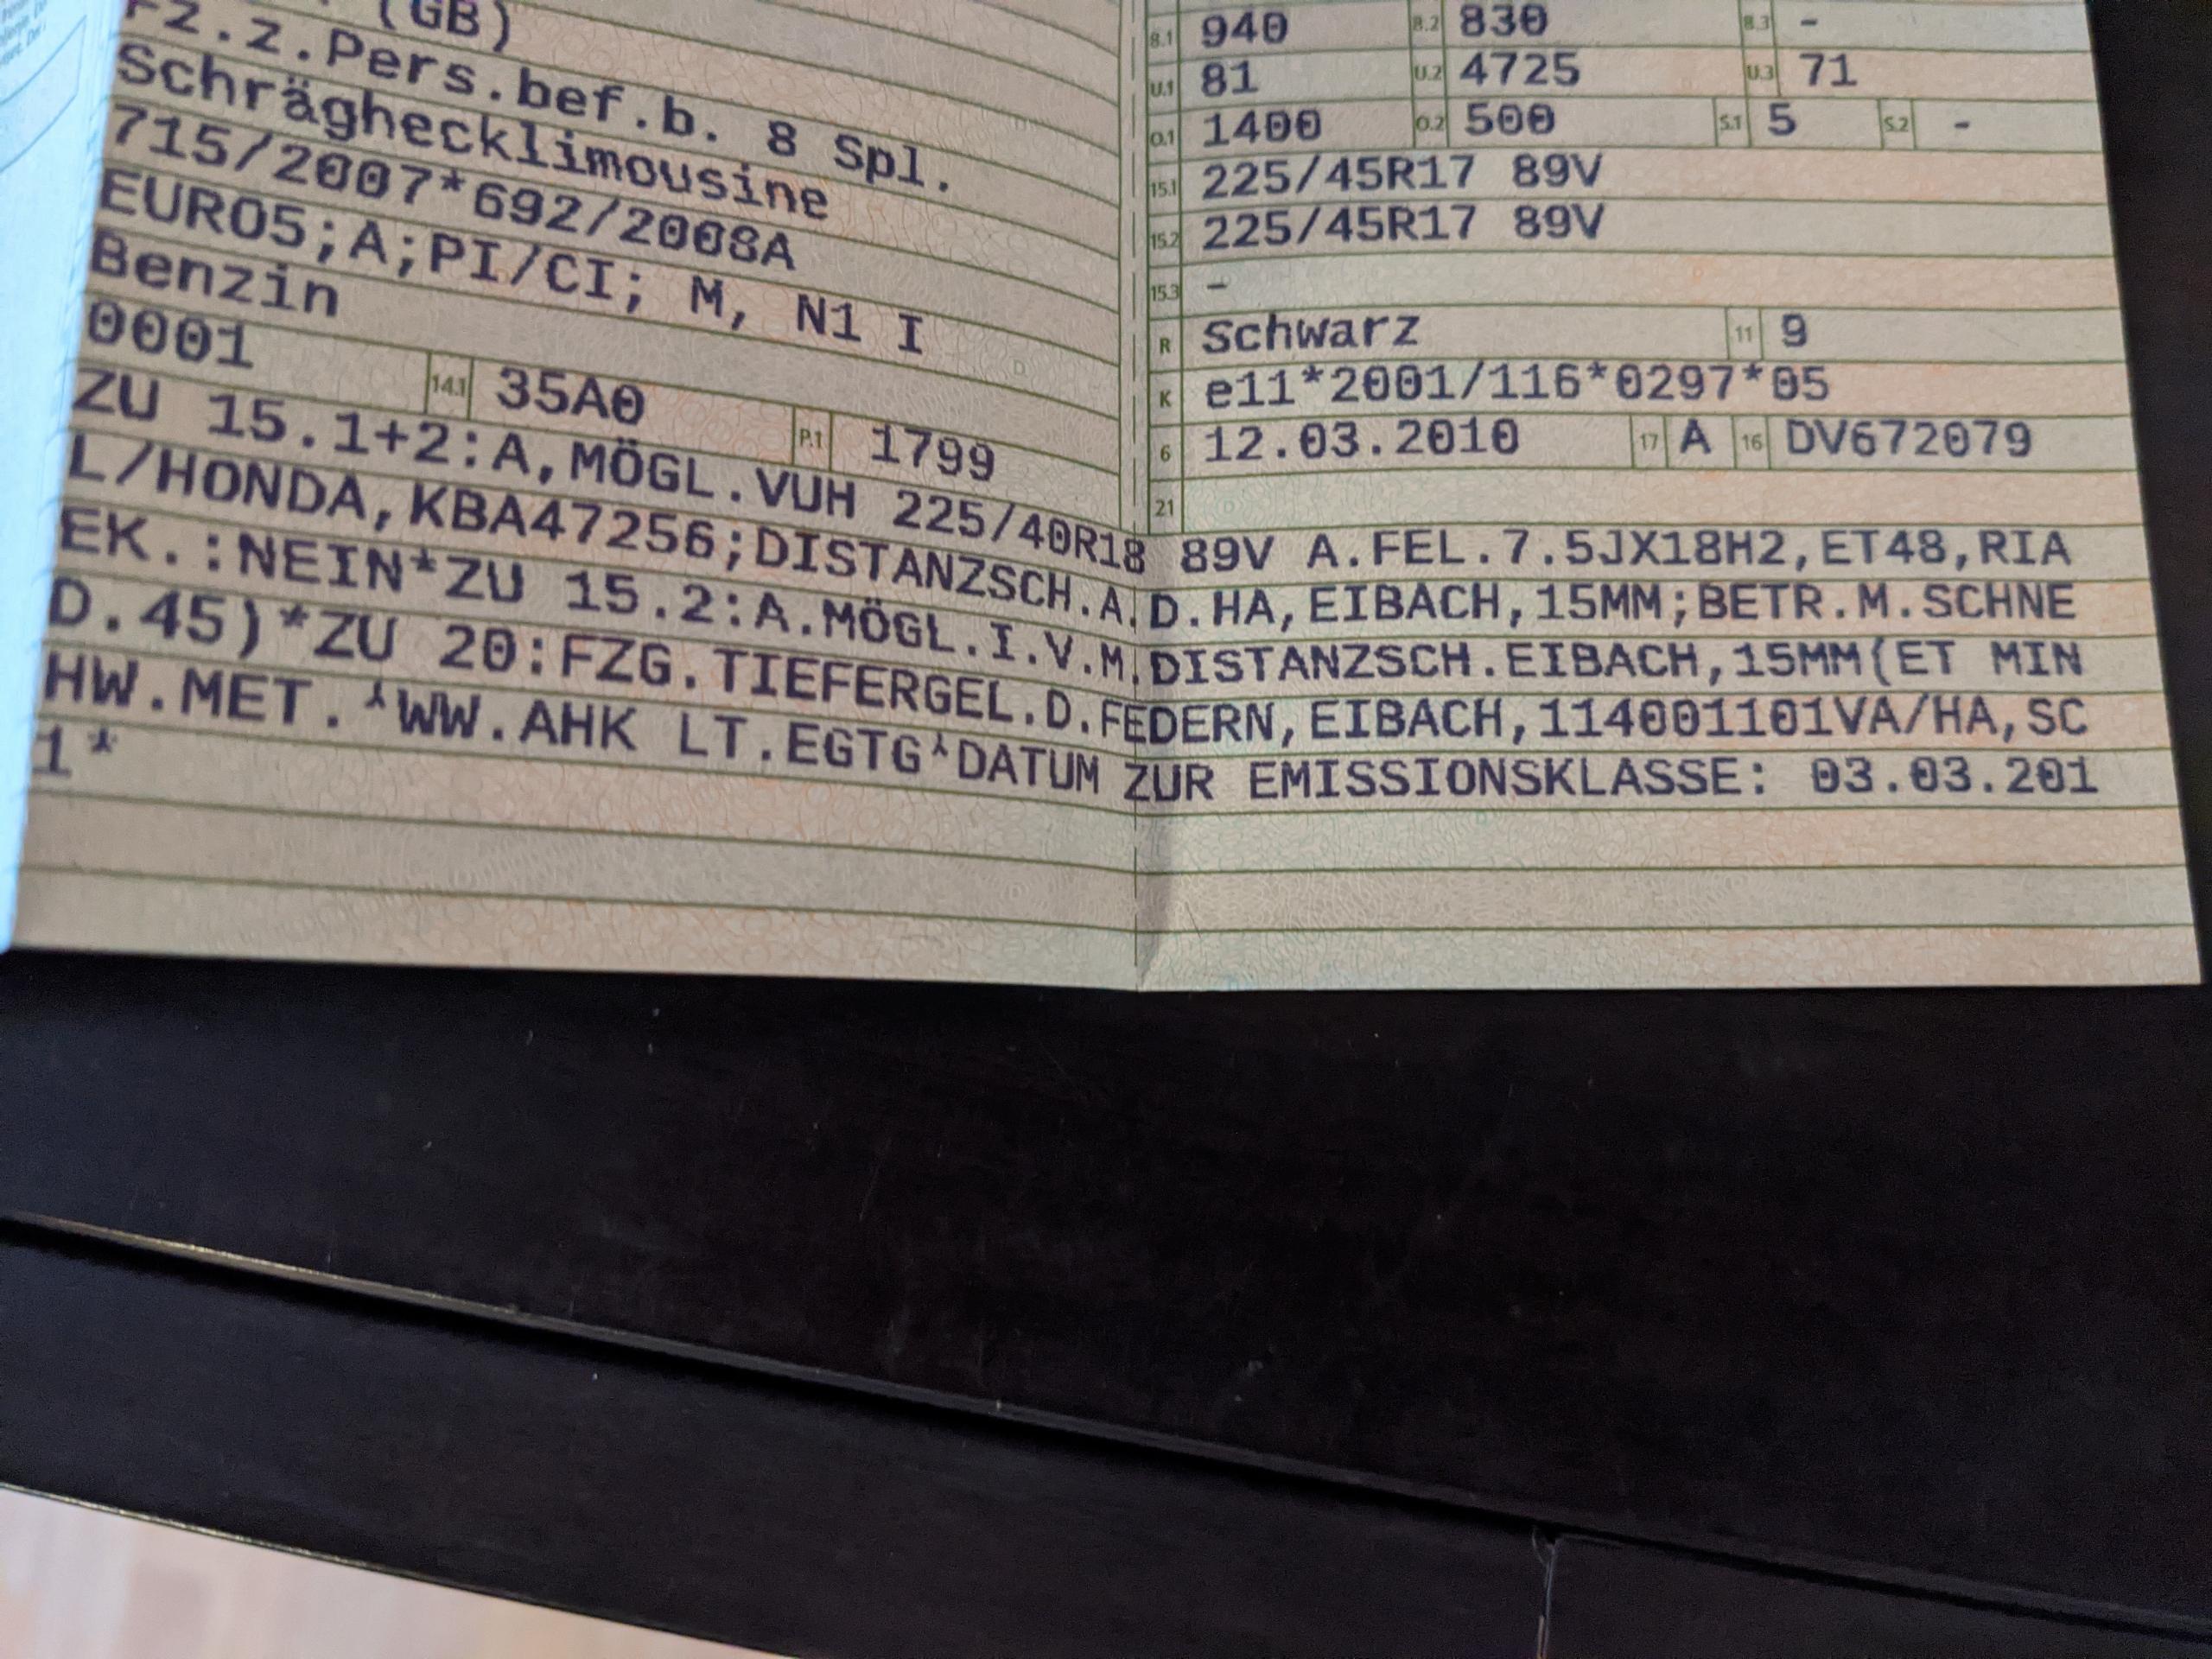 (GB)
Fz.z.Pers.bef.b. 8 Spl.
Schräghecklimousine
715/2007*692/2008A
EURO5;A;PI/CI; M, N1 I
Benzin
0001 14.1 35A0 P.1 1799
8.1 940 8.2 830 8.3 -
U.1 81 U.2 4725 U.3 71
O.1 1400 O.2 500 S.1 5 S.2 -
15.1 225/45R17 89V
15.2 225/45R17 89V
15.3 -
R schwarz 11 9
K e11*2001/116*0297*05
6 12.03.2010 17 A 16 DV672079
21
ZU 15.1+2:A,MÖGL.VUH 225/40R18 89V A.FEL.7.5JX18H2,ET48,RIA
L/HONDA,KBA47256;DISTANZSCH.A.D.HA,EIBACH,15MM;BETR.M.SCHNE
EK.:NEIN*ZU 15.2:A.MÖGL.I.V.M.DISTANZSCH.EIBACH,15MM(ET MIN
D.45)*ZU 20:FZG.TIEFERGEL.D.FEDERN,EIBACH,114001101VA/HA,SC
HW.MET.*WW.AHK LT.EGTG*DATUM ZUR EMISSIONSKLASSE: 03.03.201
1*